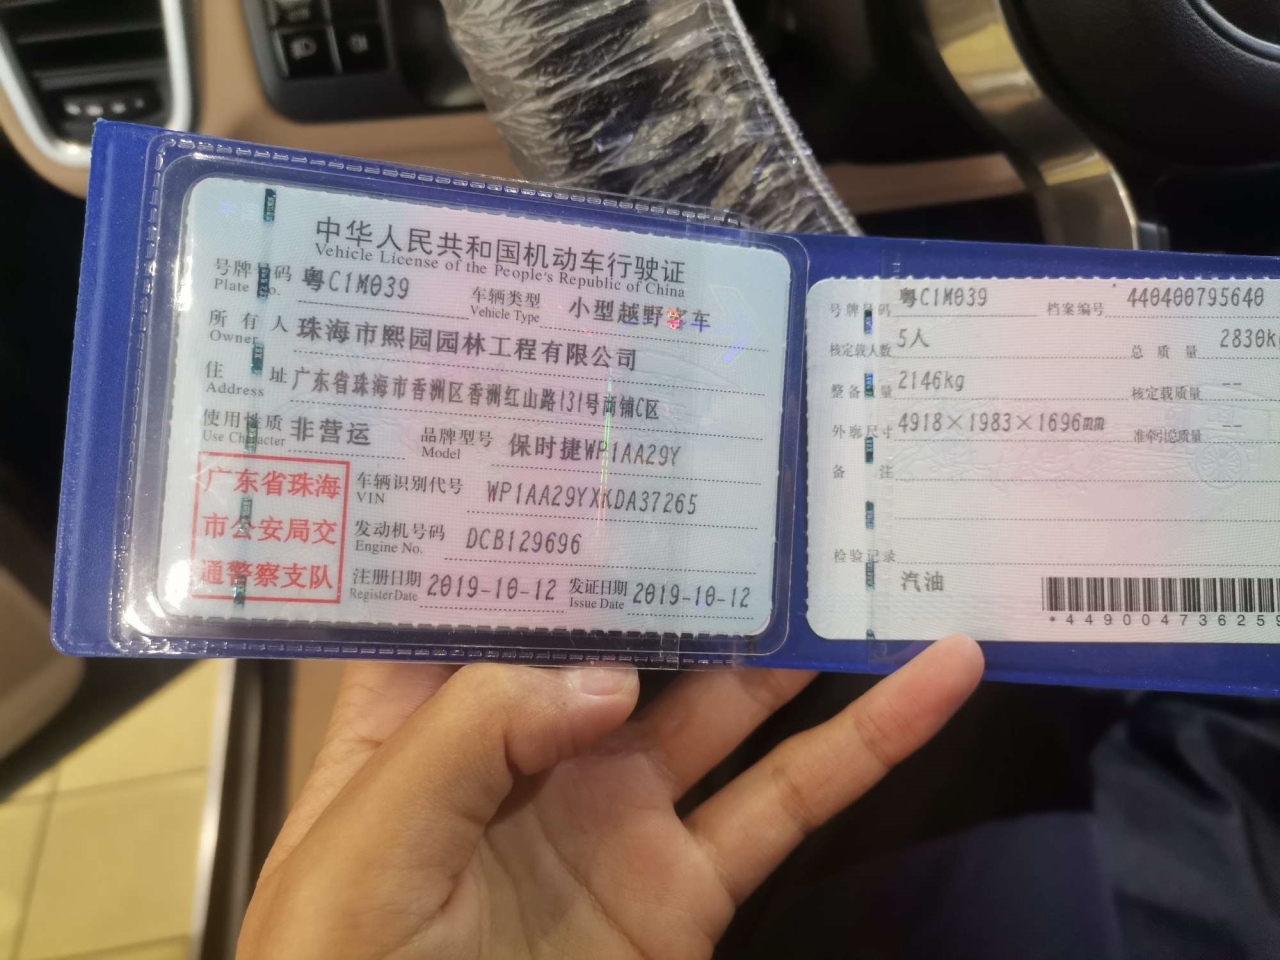 中华人民共和国机动车行驶证
Vehicle License of the People's Republic of China
号牌号码 粤C1M039 车辆类型 小型越野客车
Plate No. Vehicle Type
所有人 珠海市熙园园林工程有限公司
Owner
住址 广东省珠海市香洲区香洲红山路131号商铺C区
Address
使用性质 非营运 品牌型号 保时捷WP1AA29Y
Use Character Model
广东省珠海
市公安局交
通警察支队
车辆识别代号 WP1AA29YXKDA37265
VIN
发动机号码 DCB129696
Engine No.
注册日期 2019-10-12 发证日期 2019-10-12
Register Date Issue Date
号牌号码 粤C1M039 档案编号 440400795640
核定载人数 5人 总质量 2830k
整备质量 2146kg 核定载质量 --
外廓尺寸 4918×1983×1696mm 准牵引总质量 --
备注
检验记录
汽油
*449004736259